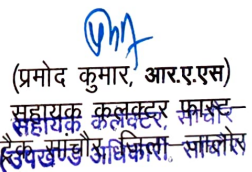 (प्रमोद कुमार, आर.ए.एस)
सहायक कलक्टर फास्ट
सहायक कलेक्टर, सांचौर
ट्रैक सांचौर जिला जालोर
उपखण्ड अधिकारी, सांचौर